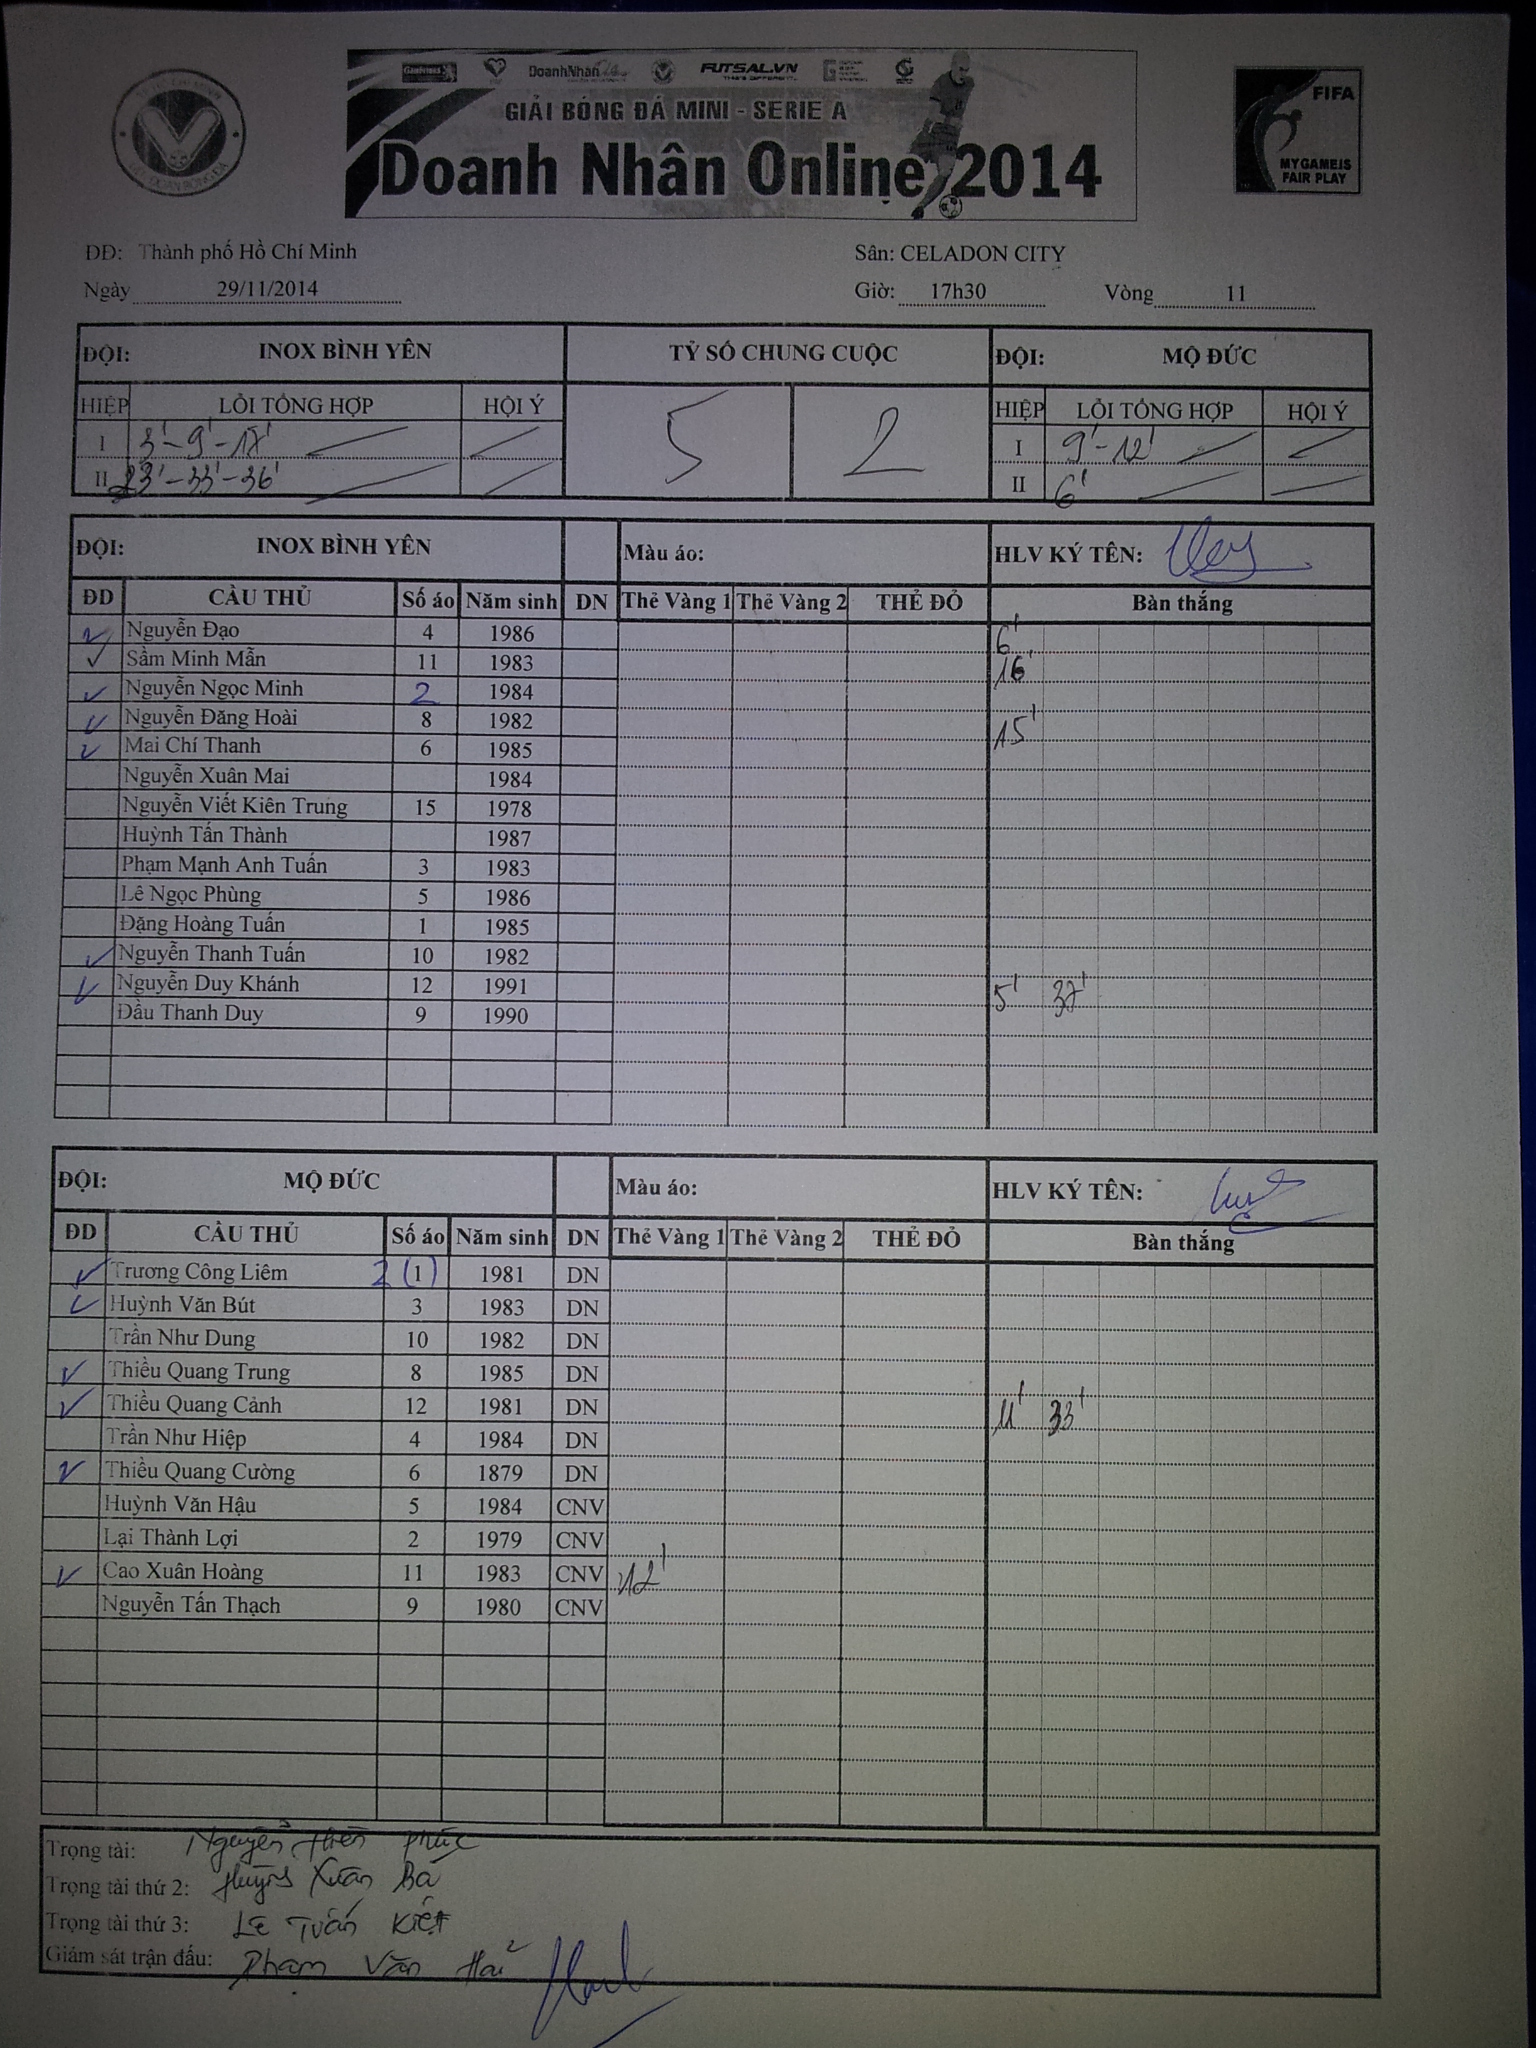 DoanhNhan
FUTSAL.VN
GIẢI BÓNG ĐÁ MINI - SERIE A
Doanh Nhân Online 2014
FIFA
MY GAME IS
FAIR PLAY
ĐĐ: Thành phố Hồ Chí Minh Sân: CELADON CITY
Ngày 29/11/2014 Giờ: 17h30 Vòng 11
ĐỘI: INOX BÌNH YÊN TỶ SỐ CHUNG CUỘC ĐỘI: MỘ ĐỨC
HIỆP LỖI TỔNG HỢP HỘI Ý 5 2 HIỆP LỖI TỔNG HỢP HỘI Ý
I 3'-9'-17' I 9'-12'
II 23'-33'-36' II 6'
ĐỘI: INOX BÌNH YÊN Màu áo: HLV KÝ TÊN:
ĐD CẦU THỦ Số áo Năm sinh DN Thẻ Vàng 1 Thẻ Vàng 2 THẺ ĐỎ Bàn thắng
Nguyễn Đạo 4 1986 6'
Sầm Minh Mẫn 11 1983 16'
Nguyễn Ngọc Minh 2 1984
Nguyễn Đăng Hoài 8 1982 15'
Mai Chí Thanh 6 1985
Nguyễn Xuân Mai 1984
Nguyễn Viết Kiên Trung 15 1978
Huỳnh Tấn Thành 1987
Phạm Mạnh Anh Tuấn 3 1983
Lê Ngọc Phùng 5 1986
Đặng Hoàng Tuấn 1 1985
Nguyễn Thanh Tuấn 10 1982
Nguyễn Duy Khánh 12 1991 5' 37'
Đầu Thanh Duy 9 1990
ĐỘI: MỘ ĐỨC Màu áo: HLV KÝ TÊN:
ĐD CẦU THỦ Số áo Năm sinh DN Thẻ Vàng 1 Thẻ Vàng 2 THẺ ĐỎ Bàn thắng
Trương Công Liêm 2 (1) 1981 DN
Huỳnh Văn Bút 3 1983 DN
Trần Như Dung 10 1982 DN
Thiều Quang Trung 8 1985 DN
Thiều Quang Cảnh 12 1981 DN 11' 33'
Trần Như Hiệp 4 1984 DN
Thiều Quang Cường 6 1879 DN
Huỳnh Văn Hậu 5 1984 CNV
Lại Thành Lợi 2 1979 CNV
Cao Xuân Hoàng 11 1983 CNV 12'
Nguyễn Tấn Thạch 9 1980 CNV
Trọng tài: Nguyễn Hiền Phúc
Trọng tài thứ 2: Huỳnh Xuân Bá
Trọng tài thứ 3: Lê Tuấn Kiệt
Giám sát trận đấu: Phạm Văn Hải